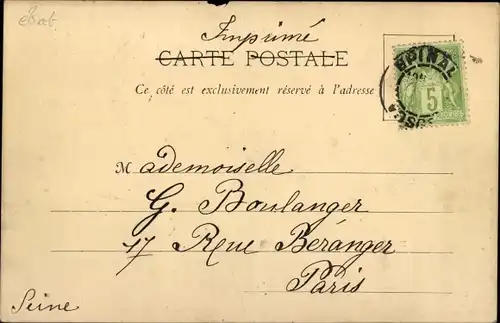 Imprimé
CARTE POSTALE
Ce côté est exclusivement réservé à l'adresse
EPINAL
5
VOSGES
Mademoiselle
G. Boulanger
17 Rue Béranger
Paris
Seine